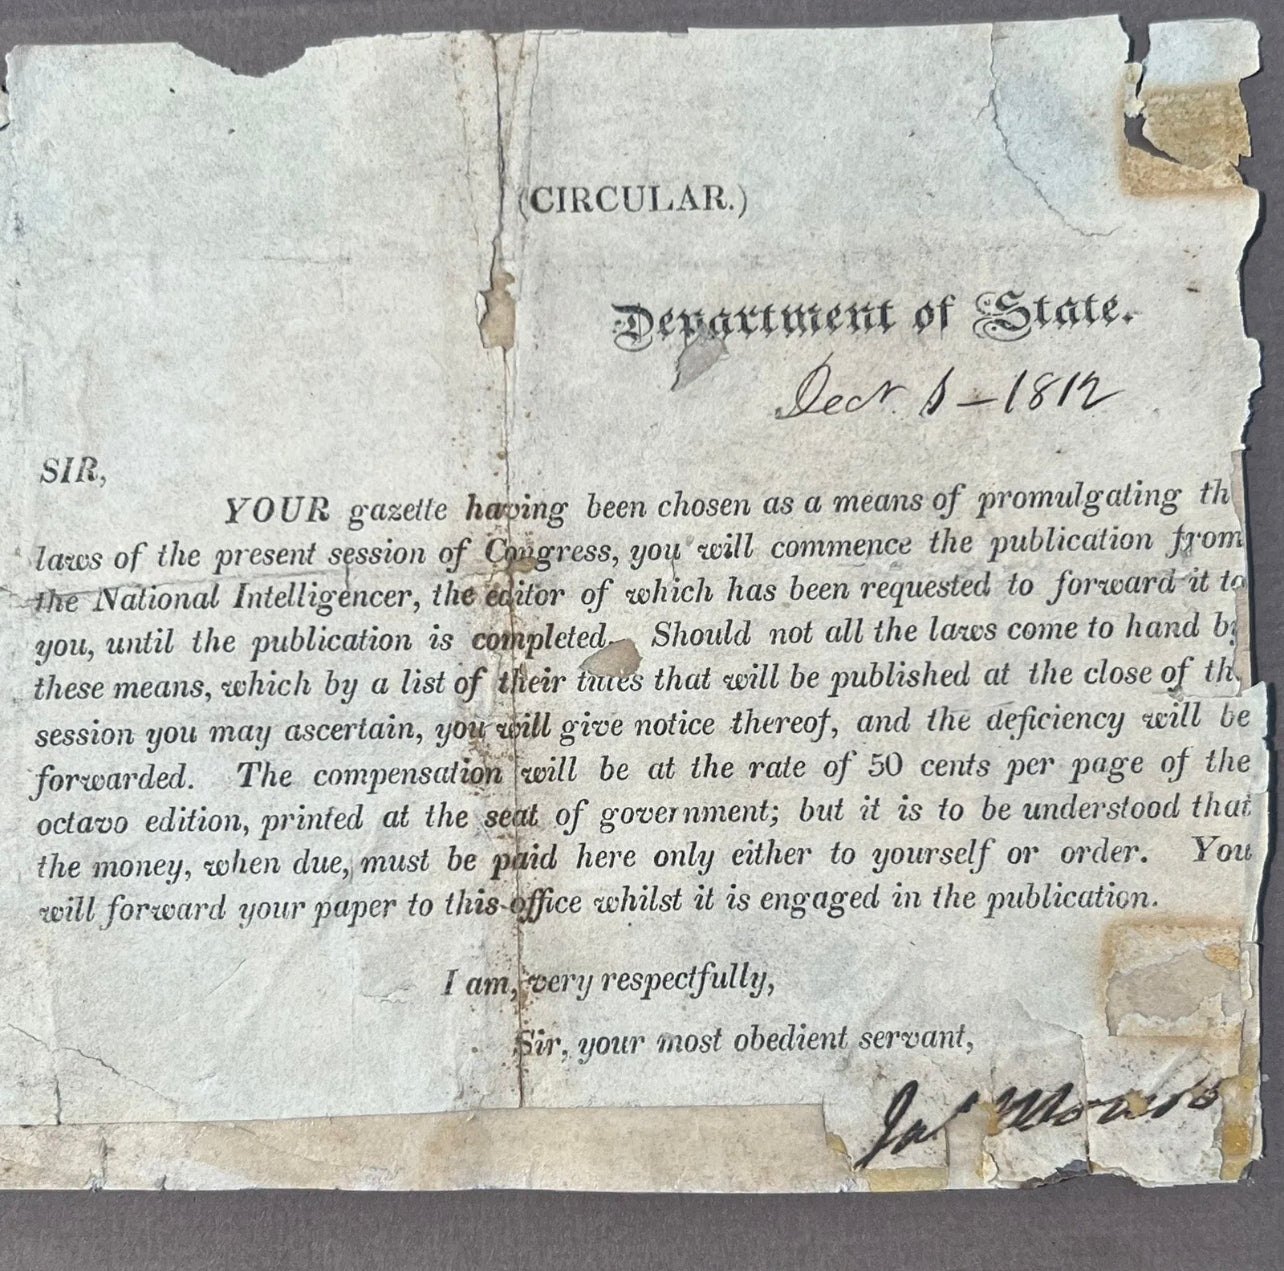 (CIRCULAR.)
Department of State.
Decr. 1 – 1812
SIR,
YOUR gazette having been chosen as a means of promulgating th
laws of the present session of Congress, you will commence the publication from
the National Intelligencer, the editor of which has been requested to forward it to
you, until the publication is completed. Should not all the laws come to hand by
these means, which by a list of their titles that will be published at the close of th
session you may ascertain, you will give notice thereof, and the deficiency will be
forwarded. The compensation will be at the rate of 50 cents per page of the
octavo edition, printed at the seat of government; but it is to be understood that
the money, when due, must be paid here only either to yourself or order. You
will forward your paper to this office whilst it is engaged in the publication.
I am, very respectfully,
Sir, your most obedient servant,
Jas Monroe